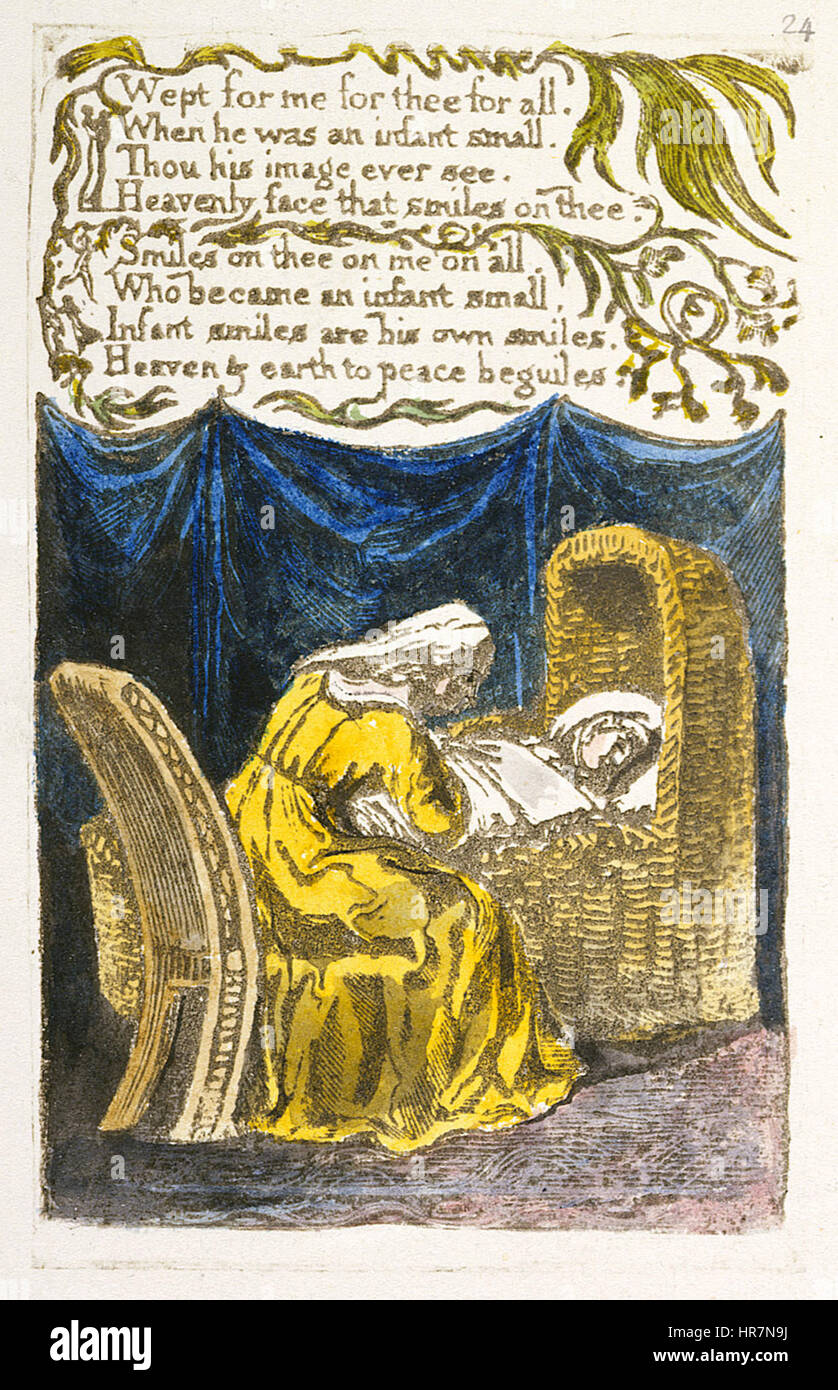 24
Wept for me for thee for all.
When he was an infant small.
Thou his image ever see.
Heavenly face that smiles on thee.
Smiles on thee on me on all.
Who became an infant small.
Infant smiles are his own smiles.
Heaven & earth to peace beguiles.
a
alamy stock photo
HR7N9J
www.alamy.com